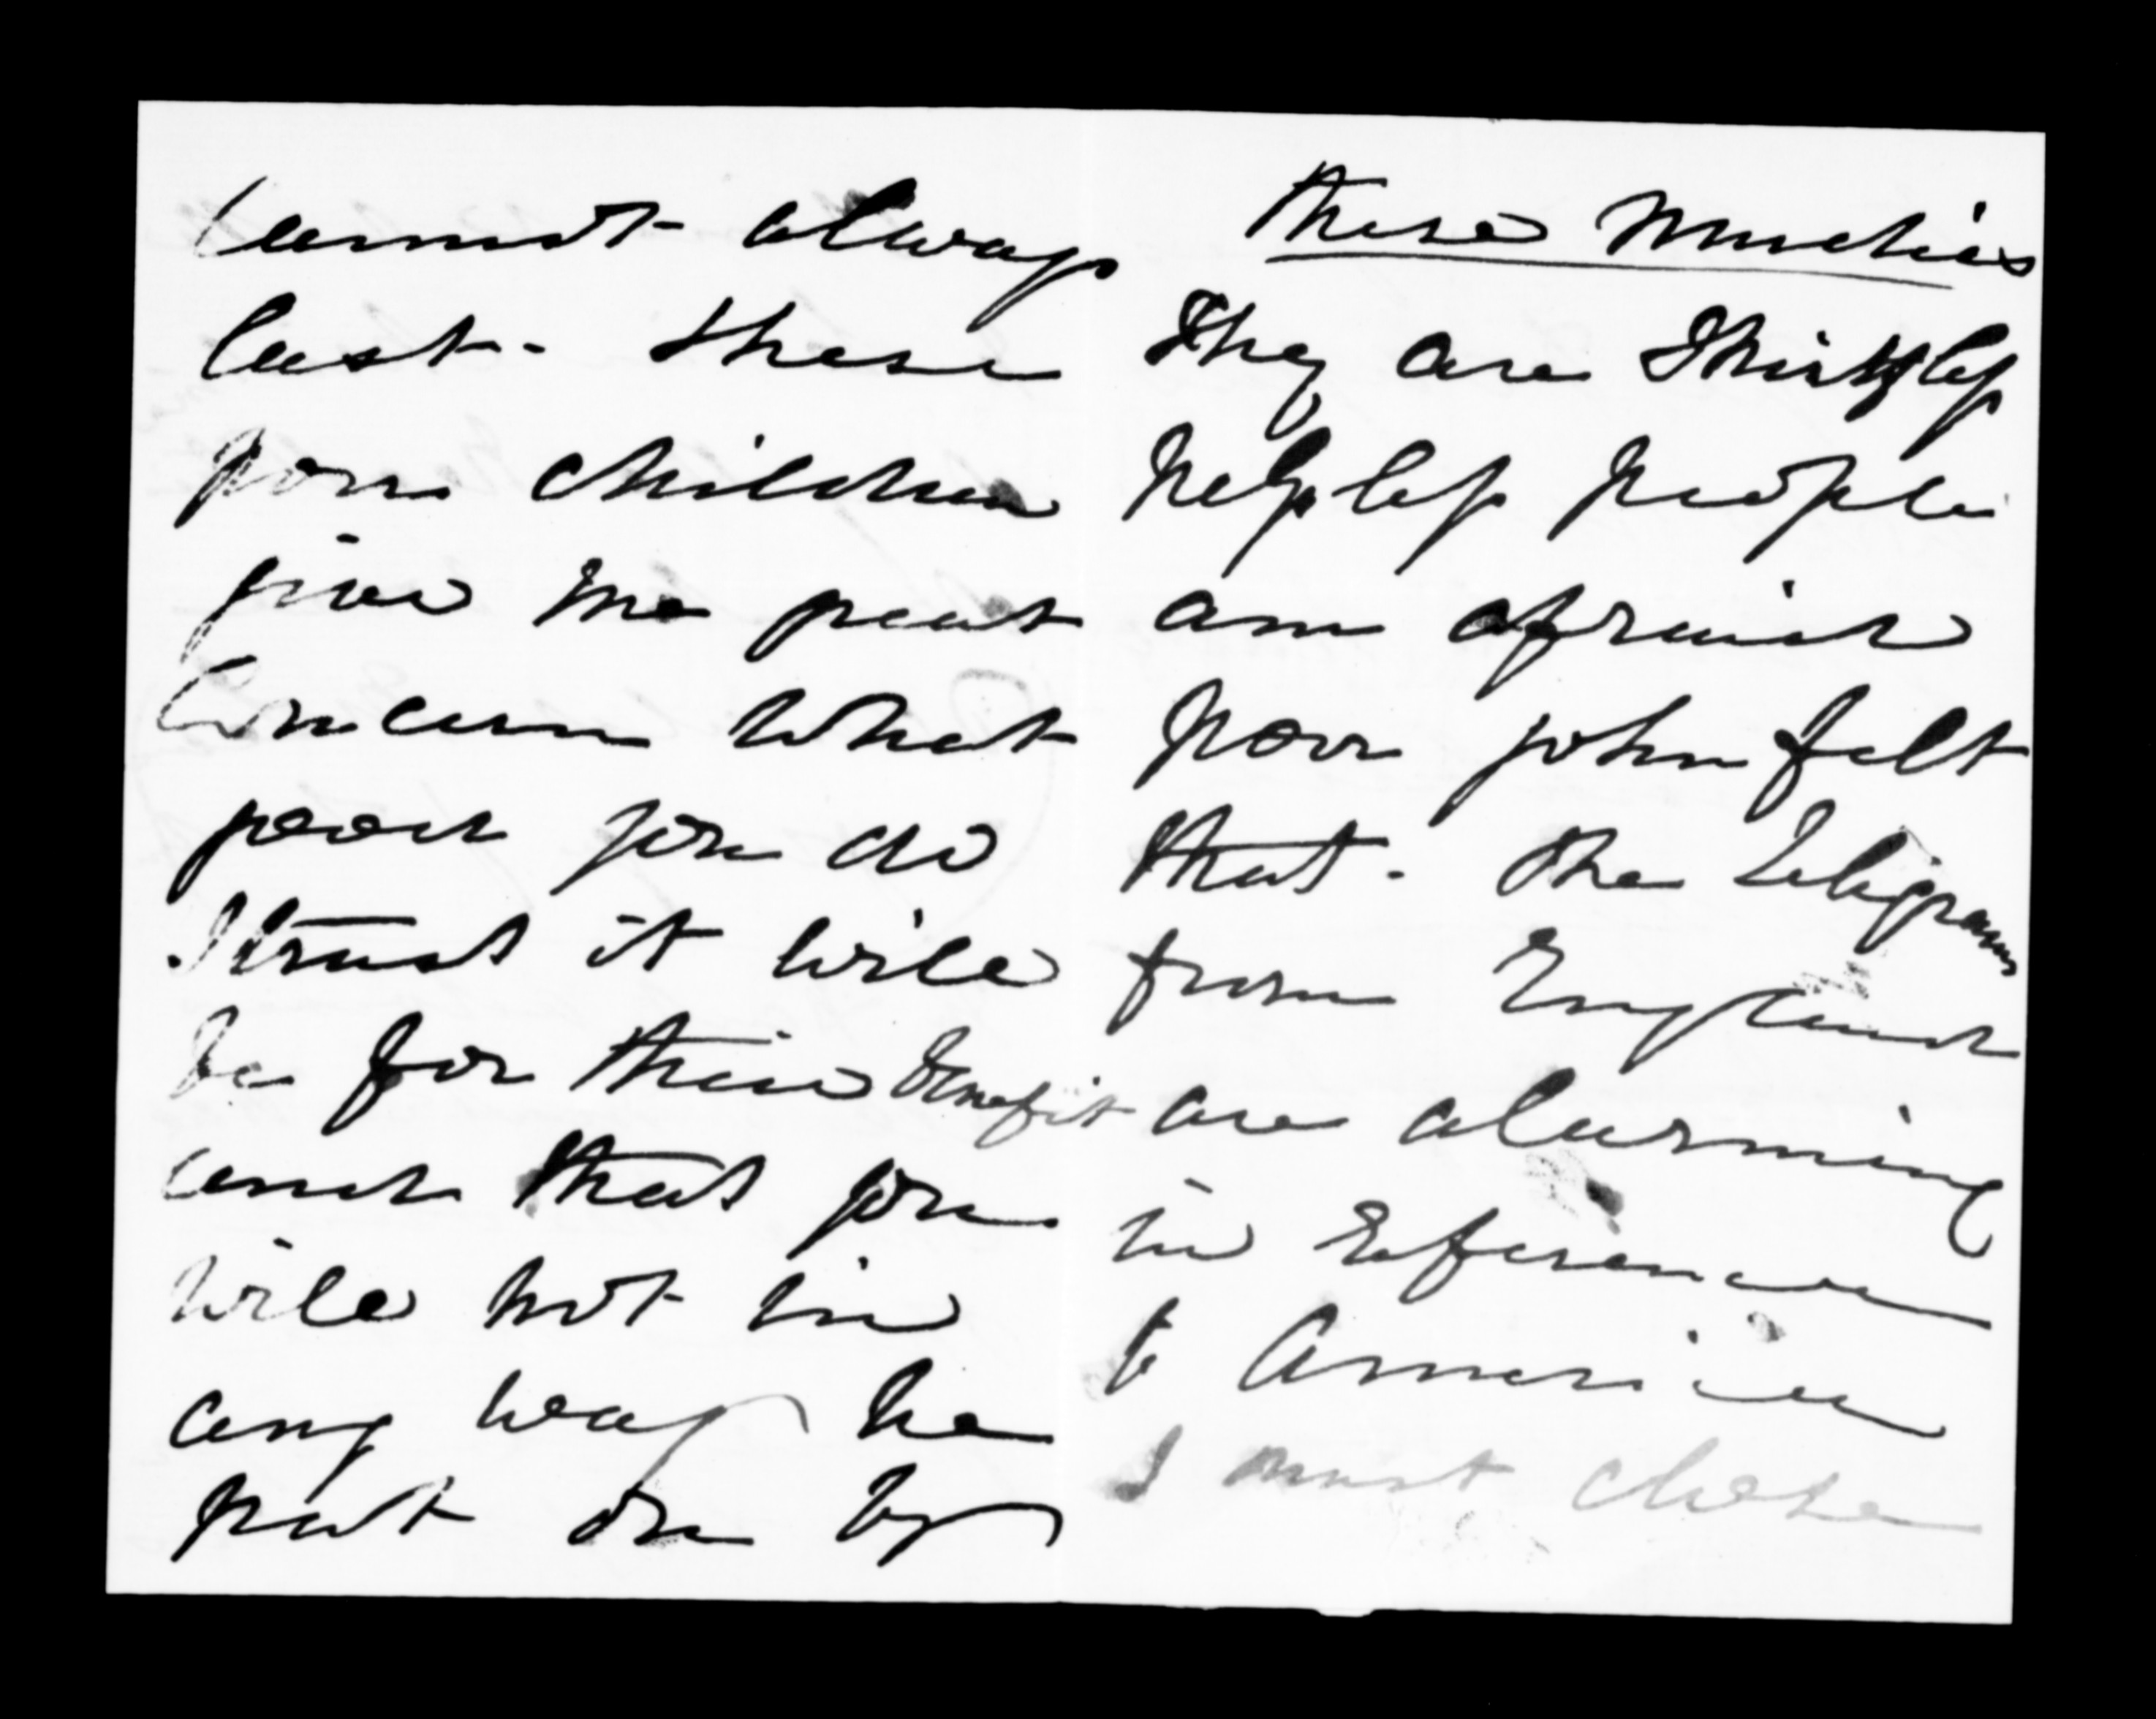 cannot always
last. these
poor children
give me great
concern what
good you do
I trust it will
be for their benefit
and that you
will not in
any way be
put on by
these
They are thriftless
helpless people
am afraid
poor John felt
that. The Telegrams
from England
are alarming
in reference
to America
I must close